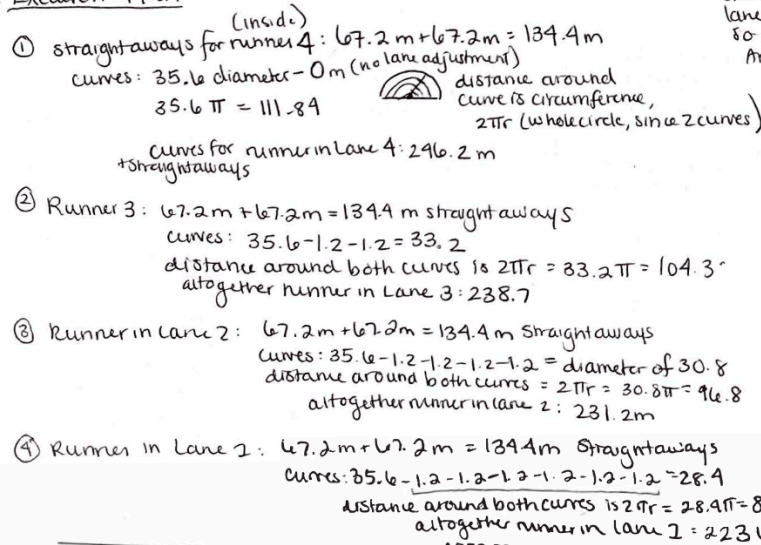 (inside)
① straightaways for runner 4: 67.2m+67.2m = 134.4m
curves: 35.6 diameter - 0m (no lane adjustment)
35.6 π = 111.84
distance around
curve is circumference,
2πr (whole circle, since 2 curves)
curves for runner in Lane 4: 246.2 m
+straightaways
② Runner 3: 67.2m +67.2m = 134.4 m straightaways
curves: 35.6-1.2-1.2 = 33.2
distance around both curves is 2πr = 33.2π = 104.3
altogether runner in Lane 3: 238.7
③ Runner in Lane 2: 67.2m +67.2m = 134.4m straightaways
curves: 35.6-1.2-1.2-1.2-1.2 = diameter of 30.8
distance around both curves = 2πr = 30.8π = 96.8
altogether runner in lane 2: 231.2m
④ Runner in Lane 1: 67.2m+67.2m = 134.4m straightaways
curves: 35.6-1.2-1.2-1.2-1.2-1.2-1.2 = 28.4
distance around both curves is 2πr = 28.4π = 8
altogether runner in lane 1: 223
lane
so